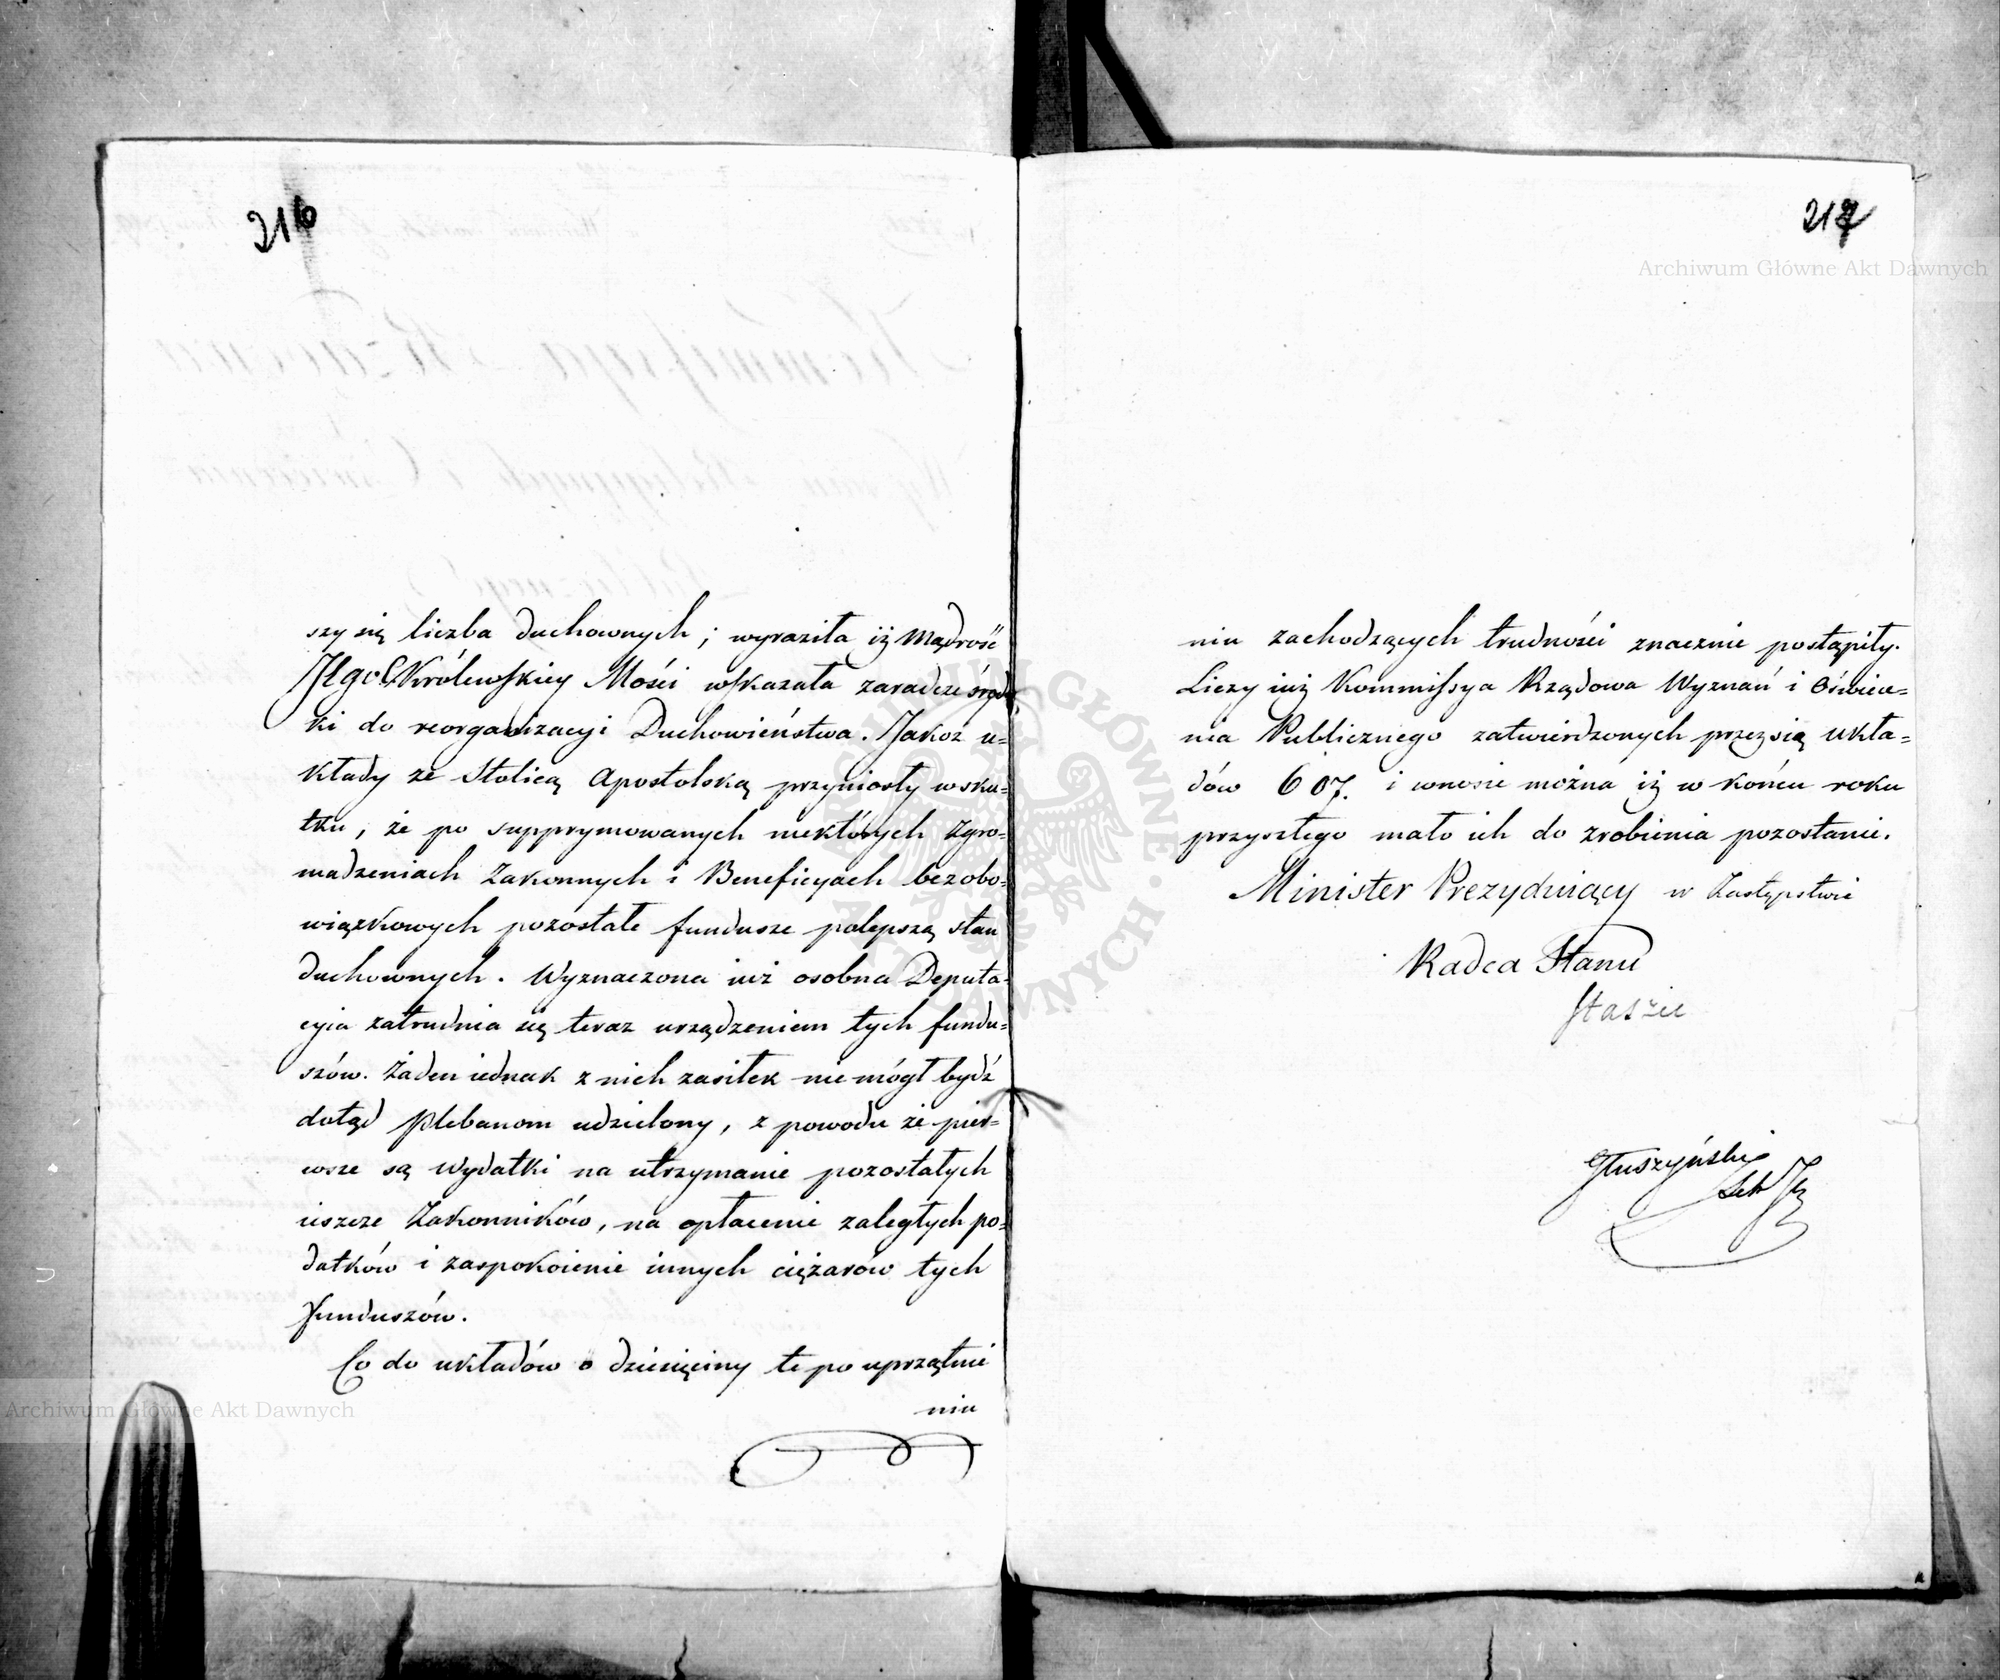 216
szy się liczba duchownych; wyraziła iż Mądrość
Jego Królewskiey Mości wskazała zaradcze środ
ki do reorganizacyi Duchowieństwa. Jakoż u=
kłady ze Stolicą Apostolską przyniosły w sku=
tku, że po supprymowanych niektórych Zgro=
madzeniach Zakonnych i Beneficyach bezobo=
wiązkowych pozostałe fundusze polepszą stan
duchownych. Wyznaczona iuż osobna Deputa=
cyia zatrudnia się teraz urządzeniem tych fundu=
szów. Żaden iednak z nich zasiłek nie mógł bydź
dotąd Plebanom udzielony, z powodu że pier=
wsze są wydatki na utrzymanie pozostałych
ieszcze Zakonników, na opłacenie zaległych po=
datków i zaspokoienie innych ciężarów tych
Funduszów.
Co do układów o dziesięciny te po uprzątnie
niu
217
niu zachodzących trudności znacznie postąpiły.
Liczy iuż Kommissya Rządowa Wyznań i Oświece=
nia Publicznego zatwierdzonych przez się ukła=
dów 607. i wnosić można iż w końcu roku
przyszłego mało ich do zrobienia pozostanie.
Minister Prezyduiący w Zastępstwie
Radca Stanu
Staszic
Głuszyński
Sek
Archiwum Główne Akt Dawnych
Archiwum Główne Akt Dawnych
ARCHIWUM GŁÓWNE AKT DAWNYCH